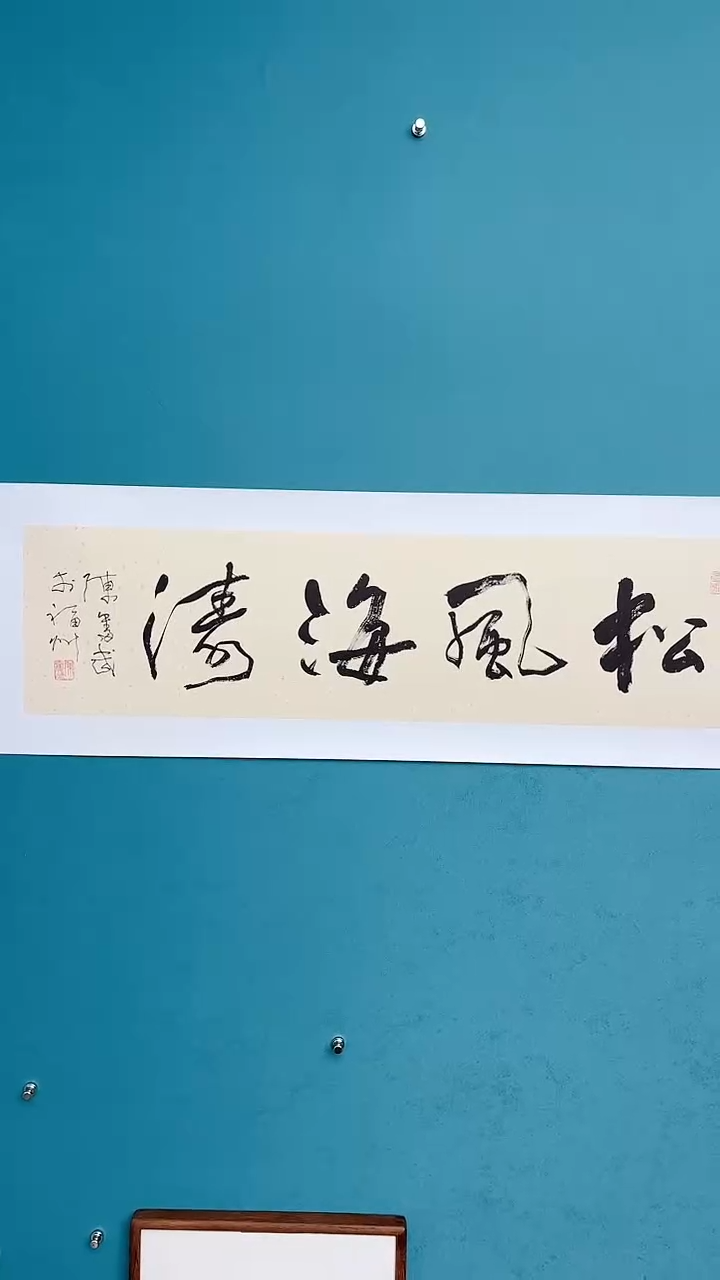 松風海濤
陳奮武
於福州